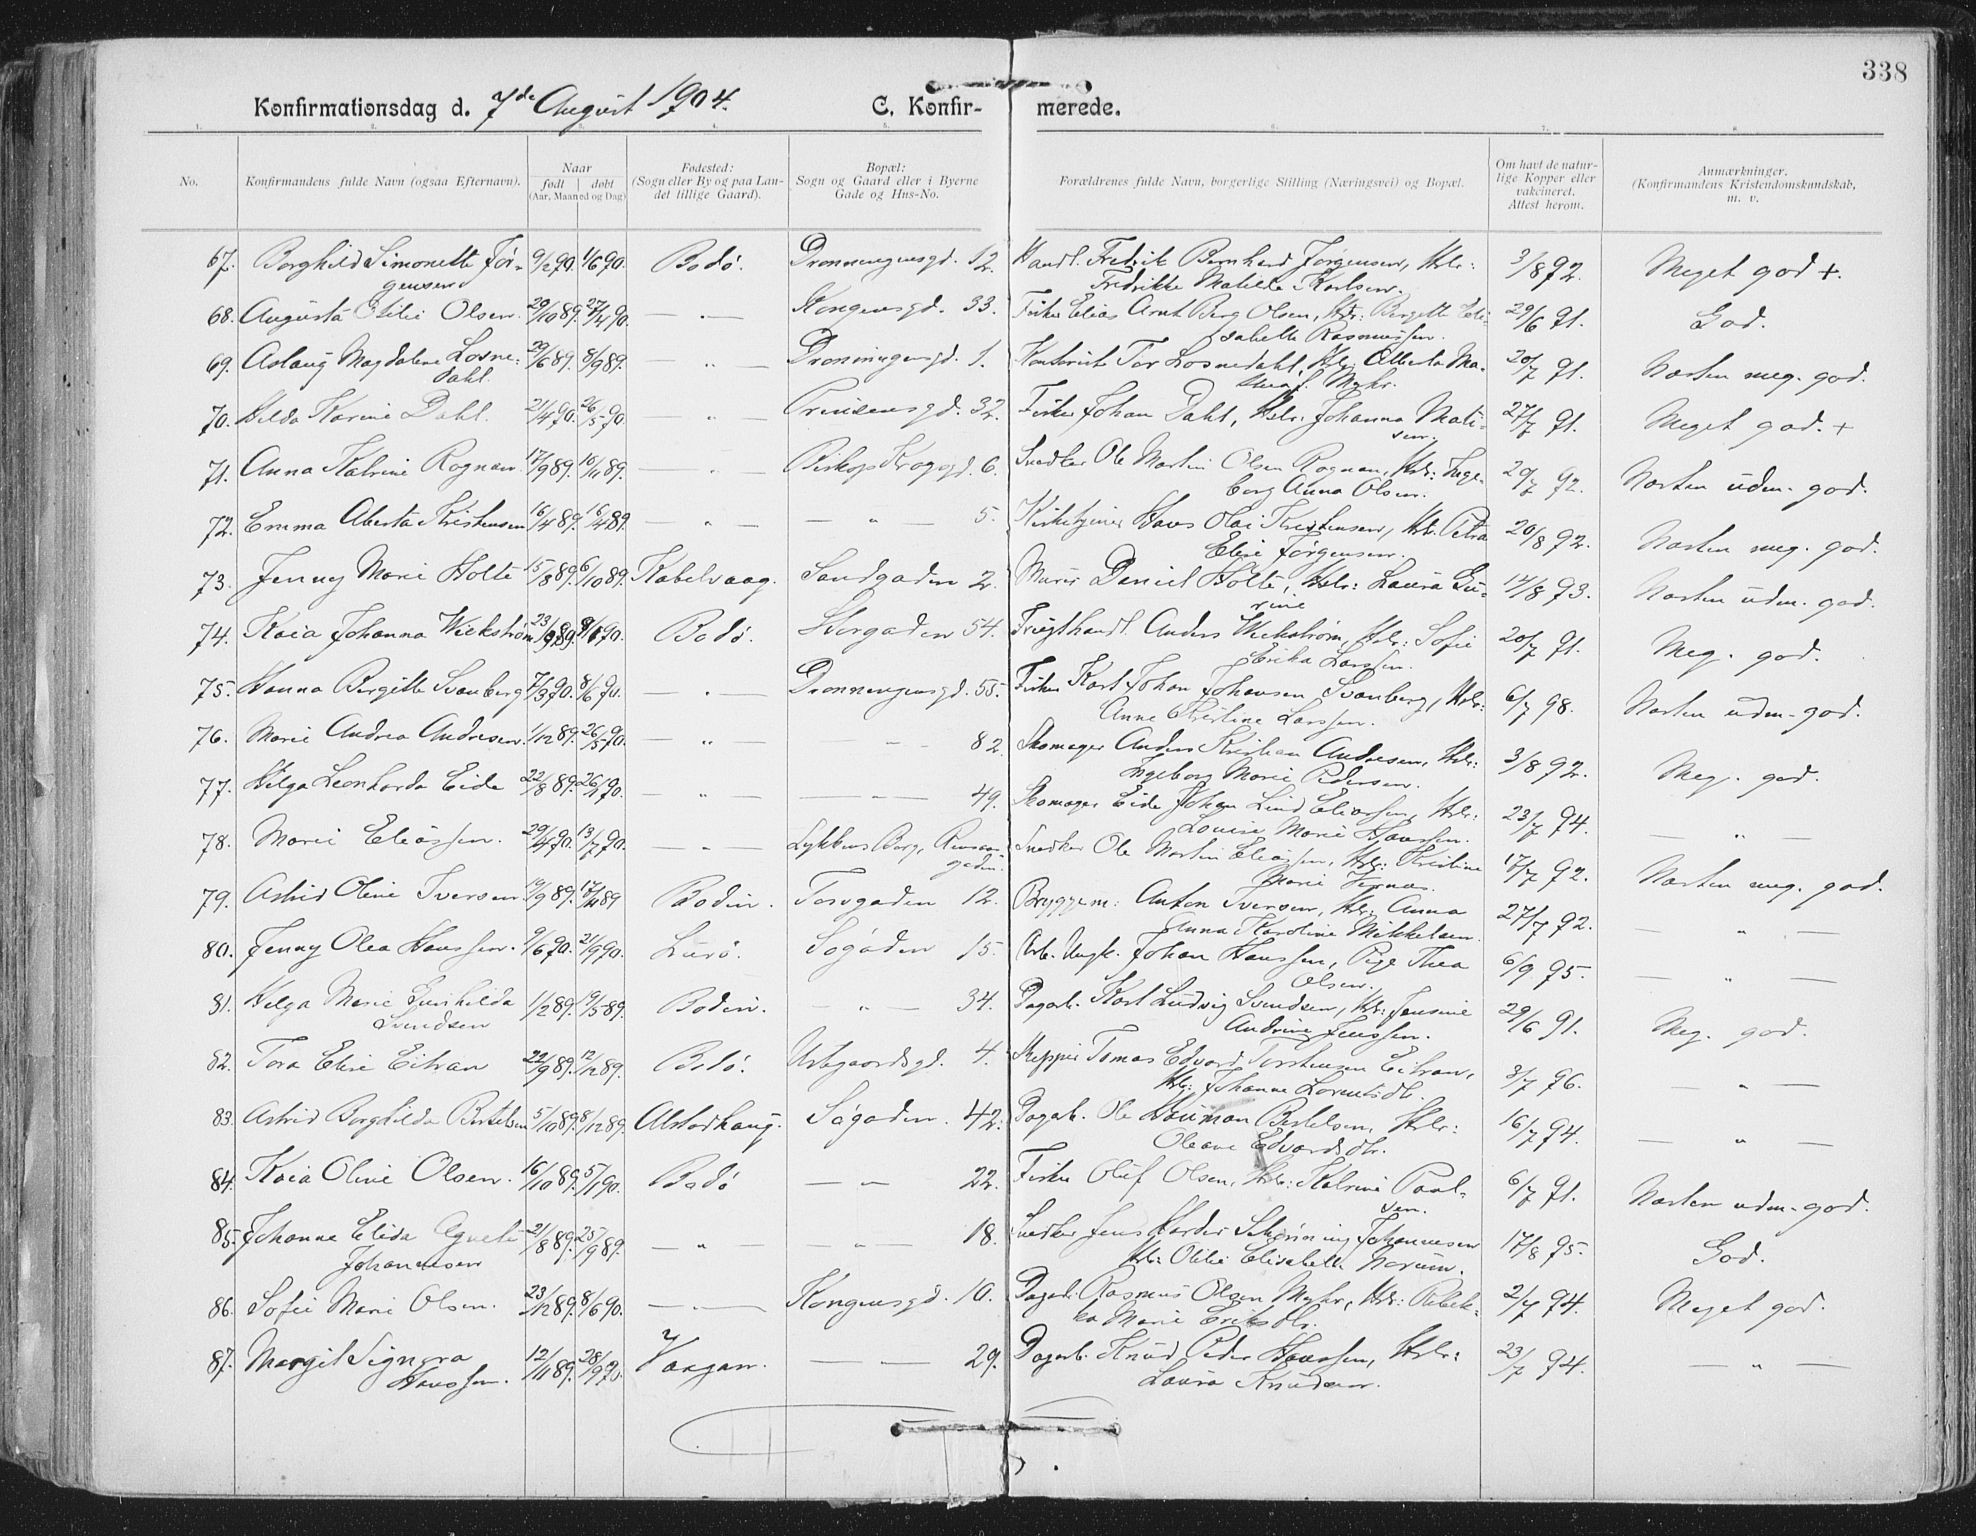 338
Konfirmationsdag d. 7de August 1904. C. Konfir- merede.
1. 2. 3. 4. 5. 6. 7. 8.
No. Konfirmandens fulde Navn (ogsaa Efternavn). Naar født døbt (Aar, Maaned og Dag) Fødested: (Sogn eller By og paa Lan- det tillige Gaard). Bopæl: Sogn og Gaard eller i Byerne Gade og Hus-No. Forældrenes fulde Navn, borgerlige Stilling (Næringsvei) og Bopæl. Om havt de natur- lige Kopper eller vakcineret. Attest herom. Anmærkninger. (Konfirmandens Kristendomskundskab, m. v.
67. Borghild Simonette Jør- 9/2 90. 4/6 90. Bodø. Dronningensgd. 12. Handl. Fredrik Bernhard Jørgensen, Hstr: 3/8 92. Meget god +.
gensen Fredrikke Matilde Karlsen.
68. Augusta Otilie Olsen. 29/10 89. 27/4 90. — " — Kongensgd. 33. Fisker Elias Arnt Berg Olsen, Hstr: Bergitte 29/6 91. God.
Isabelle Rasmussen.
69. Aslaug Magdalene Losne- 29/6 89. 8/9 89. — " — Dronningensgd. 1. Tor Losnedahl, Hstr: Alberta Ma- 20/7 91. Næsten meg. god.
dahl. Myhr.
70. Hilda Karine Dahl. 21/4 90. 26/5 90. — " — Prinsensgd. 32. Fisker Johan Dahl, Hstr: Johanna Mati- 27/7 91. Meget god. +
sen.
71. Anna Katrine Rognan. 17/9 89. 10/11 89. — " — Biskop Krogsgd. 6. Snedker Ole Martin Olsen Rognan, Hstr: Inge- 20/7 92. Næsten udm. god.
borg Anna Olsen.
72. Emma Aberta Kristensen 16/4 89. 16/4 89. — " — — " — 5. Kirketjener Hans Olai Kristensen, Hstr. Petra 20/8 92. Næsten meg. god.
Elise Jørgensen.
73. Jenny Marie Holte 15/8 89. 6/10 89. Kabelvaag. Sandgaden 2. Murer Daniel Holte, Hstr: Laura Gu- 14/8 93. Næsten udm. god.
rine
74. Kaia Johanna Wickstrøm 23/9 89. 8/6 90. Bodø. Storgaden 54. Frugthandl. Anders Wickstrøm, Hstr: Sofie 20/7 91. Meg. god.
Erika Larssen.
75. Hanna Bergitte Svanberg 7/3 90. 8/6 90. — " — Dronningensgd. 55. Fisker Karl Johan Johansen Svanberg, Hstr: 6/7 98. Næsten udm. god.
Anne Kristine Larssen.
76. Marie Andrea Andresen. 1/12 89. 26/5 90. — " — — — 82 Skomager Anders Kristian Andresen, Hstr: 3/8 92. Meg. god.
Ingeborg Marie Pedersen.
77. Helga Leonharda Eide 22/8 89. 26/1 90. — " — — — 49. Skomager Eide Johan Lind Eliassen, Hstr: 23/7 94. — " —
Lovise Marie Hanssen.
78. Marie Eliassen. 29/4 90. 13/7 90. — " — Lykkens Borg, Rensaas- Snedker Ole Martin Eliassen, Hstr: Kristine 17/7 92. Næsten meg. god.
gaden. Marie
79. Astrid Oline Iversen 19/9 89. 17/11 89 Bodin. Torvgaden 12. Bryggem: Anton Iversen, Hstr: Anna 27/7 92. — " —
Gunna Karoline Mikkelsen.
80. Jenny Olea Hanssen. 9/6 90. 21/9 90. Lurø. Søgaden 15. Arb. Ungk. Johan Hanssen, Pige Thea 6/9 95. — " —
Olsen.
81. Helga Marie Gunhilda 1/2 89. 19/5 89. Bodin. — " — 34. Dagarb. Karl Ludvig Svendsen, Hstr: Jensine 29/6 91. Meg. god.
Svendsen Andrine Jenssen.
82. Tora Elise Eitran 22/9 89. 12/12 89. Bodø. gd. 4. Skipper Tomas Edvard Torstensen Eitran, 3/7 96. — " —
Hstr: Johanne Lorentsdtr.
83. Astrid Borghilda Bertelsen 5/10 89. 8/12 89. Alstadhaug. Søgaden. 42. Dagarb. Ole Hauman Bertelsen, Hstr: 16/7 94. — " —
Oleane Edvardsdtr.
84. Kaia Oline Olsen. 16/10 89. 5/1 90. Bodø — " — 22. Fisker Oluf Olsen, Hstr: Katrine Paul- 6/7 91. Næsten udm. god.
sen.
85. Johanne Elida Agnete 21/8 89. 25/9 89. — " — — " — 18. Snedker Jens Harder Schøning Johannesen 17/8 95. God.
Johannesen Hstr: Otilie Elisabeth Norum.
86. Sofie Marie Olsen. 23/12 89. 8/6 90. — " — Kongensgd. 10. Dagarb. Rasmus Olsen Myhr, Hstr: Rebek- 2/7 94. Meget god.
ka Marie Eriksdtr.
87. Margit Signora 12/11 89. 28/9 90. Vaagan. — — 29. Dagarb. Knud Peder Hanssen, Hstr: 23/7 94. — " —
Hanssen. Laura Knudsen.